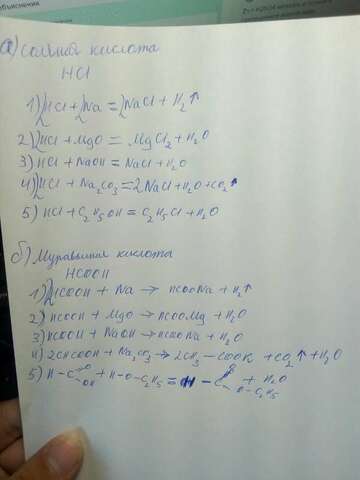 а) Соляная кислота
HCl
1) 2HCl + 2Na = 2NaCl + H₂↑
2) 2HCl + MgO = MgCl₂ + H₂O
3) HCl + NaOH = NaCl + H₂O
4) 2HCl + Na₂CO₃ = 2NaCl + H₂O + CO₂↑
5) HCl + C₂H₅OH = C₂H₅Cl + H₂O
б) Муравьиная кислота
HCOOH
1) 2HCOOH + Na → HCOONa + H₂↑
2) HCOOH + MgO → HCOOMg + H₂O
3) HCOOH + NaOH → HCOONa + H₂O
4) 2CHCOOH + Na₂CO₃ → 2CH₃ – COOK + CO₂↑ + H₂O
5) H – C =O OH + H – O – C₂H₅ = H – C =O O – C₂H₅ + H₂O